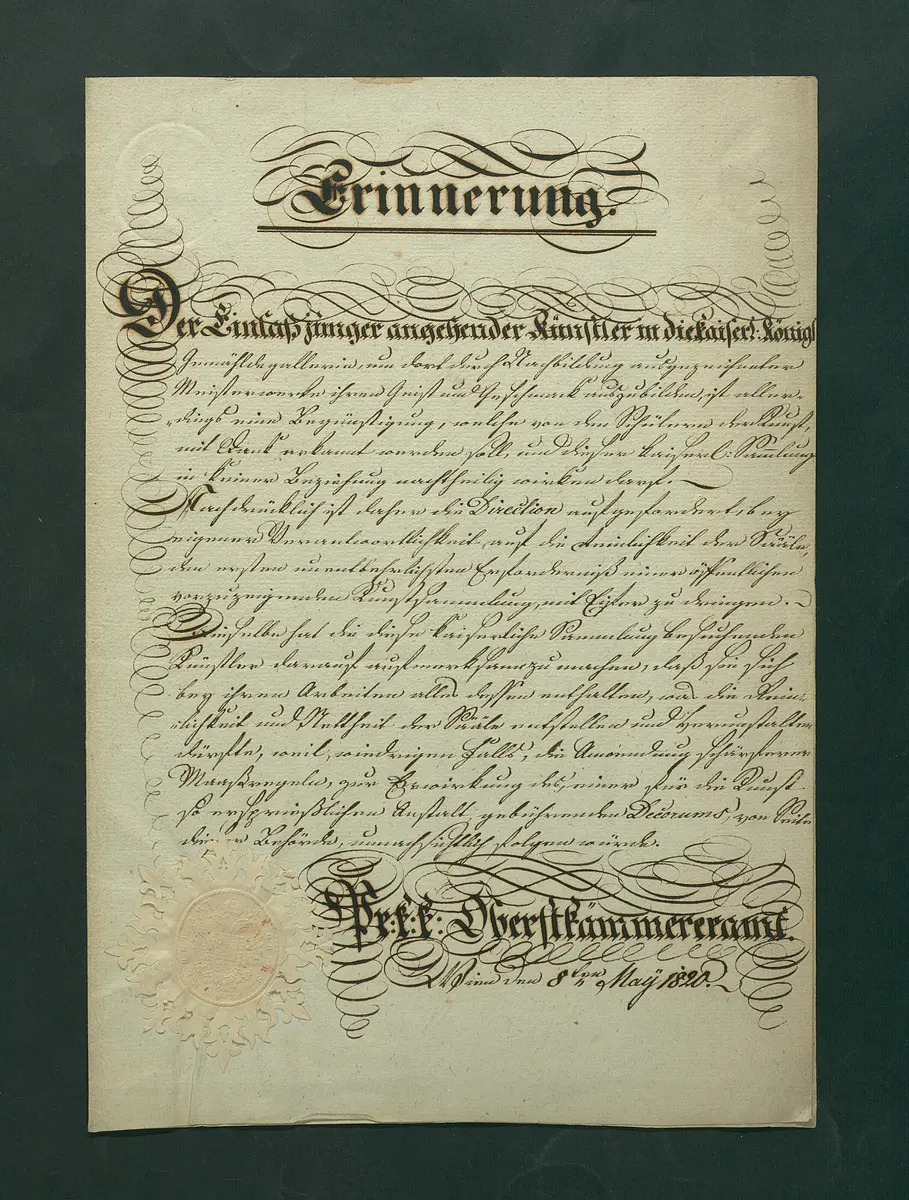 Erinnerung.
Der Einlaß junger angehender Künstler in die kaiserl: königl
Gemähldegallerie, um dort durch Nachbildung ausgezeichneter
Meisterwerke ihren Geist und Geschmack auszubilden, ist aller-
dings eine Begünstigung, welche von den Schülern der Kunst,
mit Dank erkannt werden soll, und dieser kaiserl: Sammlung
in keiner Beziehung nachtheilig wirken darf. —
Nachdrücklich ist daher die Direction aufgefordert, bey
eigener Verantwortlichkeit, auf die Reinlichkeit der Sääle,
den ersten unentbehrlichsten Erforderniß einer öffentlichen
vorzuzeigenden Kunstsammlung, mit Eifer zu dringen. —
Dieselbe hat die diese kaiserliche Sammlung besuchenden
Künstler darauf aufmerksam zu machen, daß sie sich
bey ihren Arbeiten alles dessen enthalten, was die Rein-
lichkeit und Nettheit der Sääle entstellen und verunstalten
dürfte, weil, wiedrigen Falls, die Anwendung schärferer
Maaßregeln, zur Erwirkung des, einer für die Kunst
so ersprießlichen Anstalt, gebührenden Decorums, von Seite
dieser Behörde, unnachsichtlich folgen würde.
Pr: k: k: Oberstkämmereramt.
Wien den 8ten May 1820.